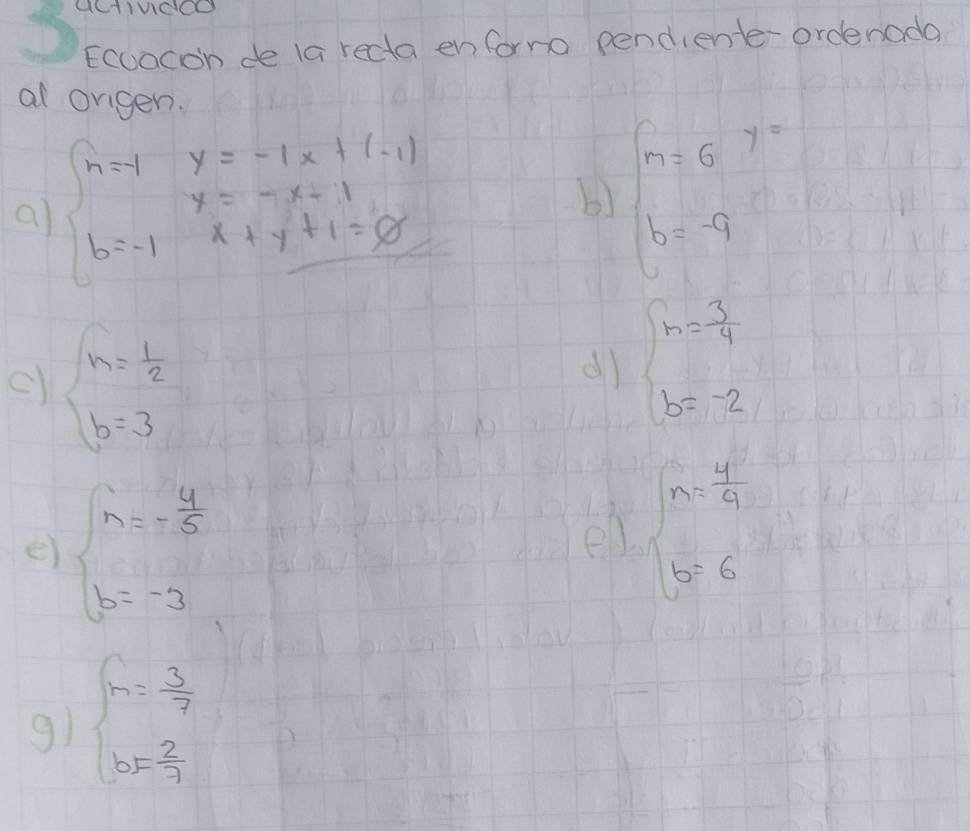 3 actividad
Ecuacón de la recta en forma pendiente-ordenada
al origen.
a) { m=-1 y = -1x + (-1)
y = -x - 1
b=-1 x + y + 1 = 0
b) { m = 6 y =
b = -9
c) { m = 1/2
b = 3
d) { m = 3/4
b = -2
e) { m = -4/5
b = -3
e) { m = 4/9
b = 6
g) { m = 3/7
b = 2/7